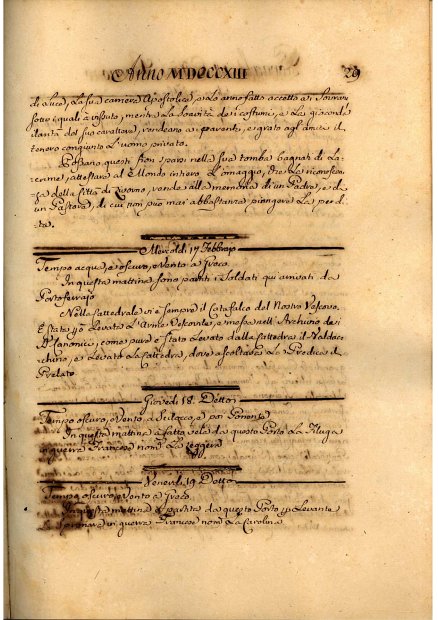 Anno MDCCCXIII 29
di Luce, la sua carriera Apostolica, e lo anno fatto accetto ai Sovrani
sotto i quali à vissuto, mentre la Soavità dei costumi, e la gioconda
ilarità del suo carattere, rendeano ai parenti, e grato agl'amici il
tenero congiunto L'uomo privato.
Possano questi fiori sparsi nella sua tomba bagnati di La-
crime, attestare al Mondo intiero L'omaggio, che la riconoscen-
za della Città di Livorno, rende alla memoria di un Padre, e di
un Pastore, di cui non può mai abbastanza piangere la perdi-
ta.
Mercoldì 17 Febbrajo
Tempo acqua, e oscuro, e Vento a Sroco.
In questa mattina sono partiti i Soldati qui arrivati da
Portoferrajo
Nella Cattedrale vi è sempre il Catafalco del Nostro Vescovo.
È stato Levato L'Arme Vescovile, e messa nell'Archivio dei
SS. Canonici, come pure è stato Levato dalla Cattedra il Baldac-
chino, e Levato la Cattedra, dove ascoltava la Predica il
Prelato
Giovedì 18. Detto
Tempo oscuro, e Vento a Scilocco, e poi Ponente
In questa mattina à fatto vela da questo Porto la Fluga
in guerra Francese nom. La Leggera
Venerdì 19 Detto
Tempo oscuro, e Vento a Sroco
In questa mattina è partito da questo Porto p. Levante
in guerra Francese nom. La Carolina